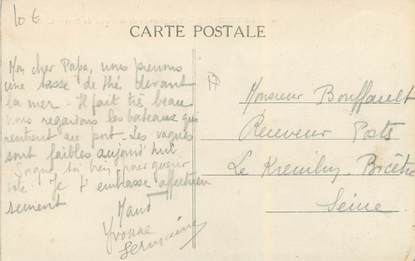 10 €
CARTE POSTALE
Mon cher Papa, nous prenons
une tasse de thé devant
la mer - Il fait très beau
nous regardons les bateaux qui
rentrent au port. Les vagues
sont faibles aujourd'hui
Je t'embrasse affectueu
sement
Maud
Yvonne
Germaine
Monsieur Bouffault
Receveur Poste
Le Kremlin-Bicêtre
Seine